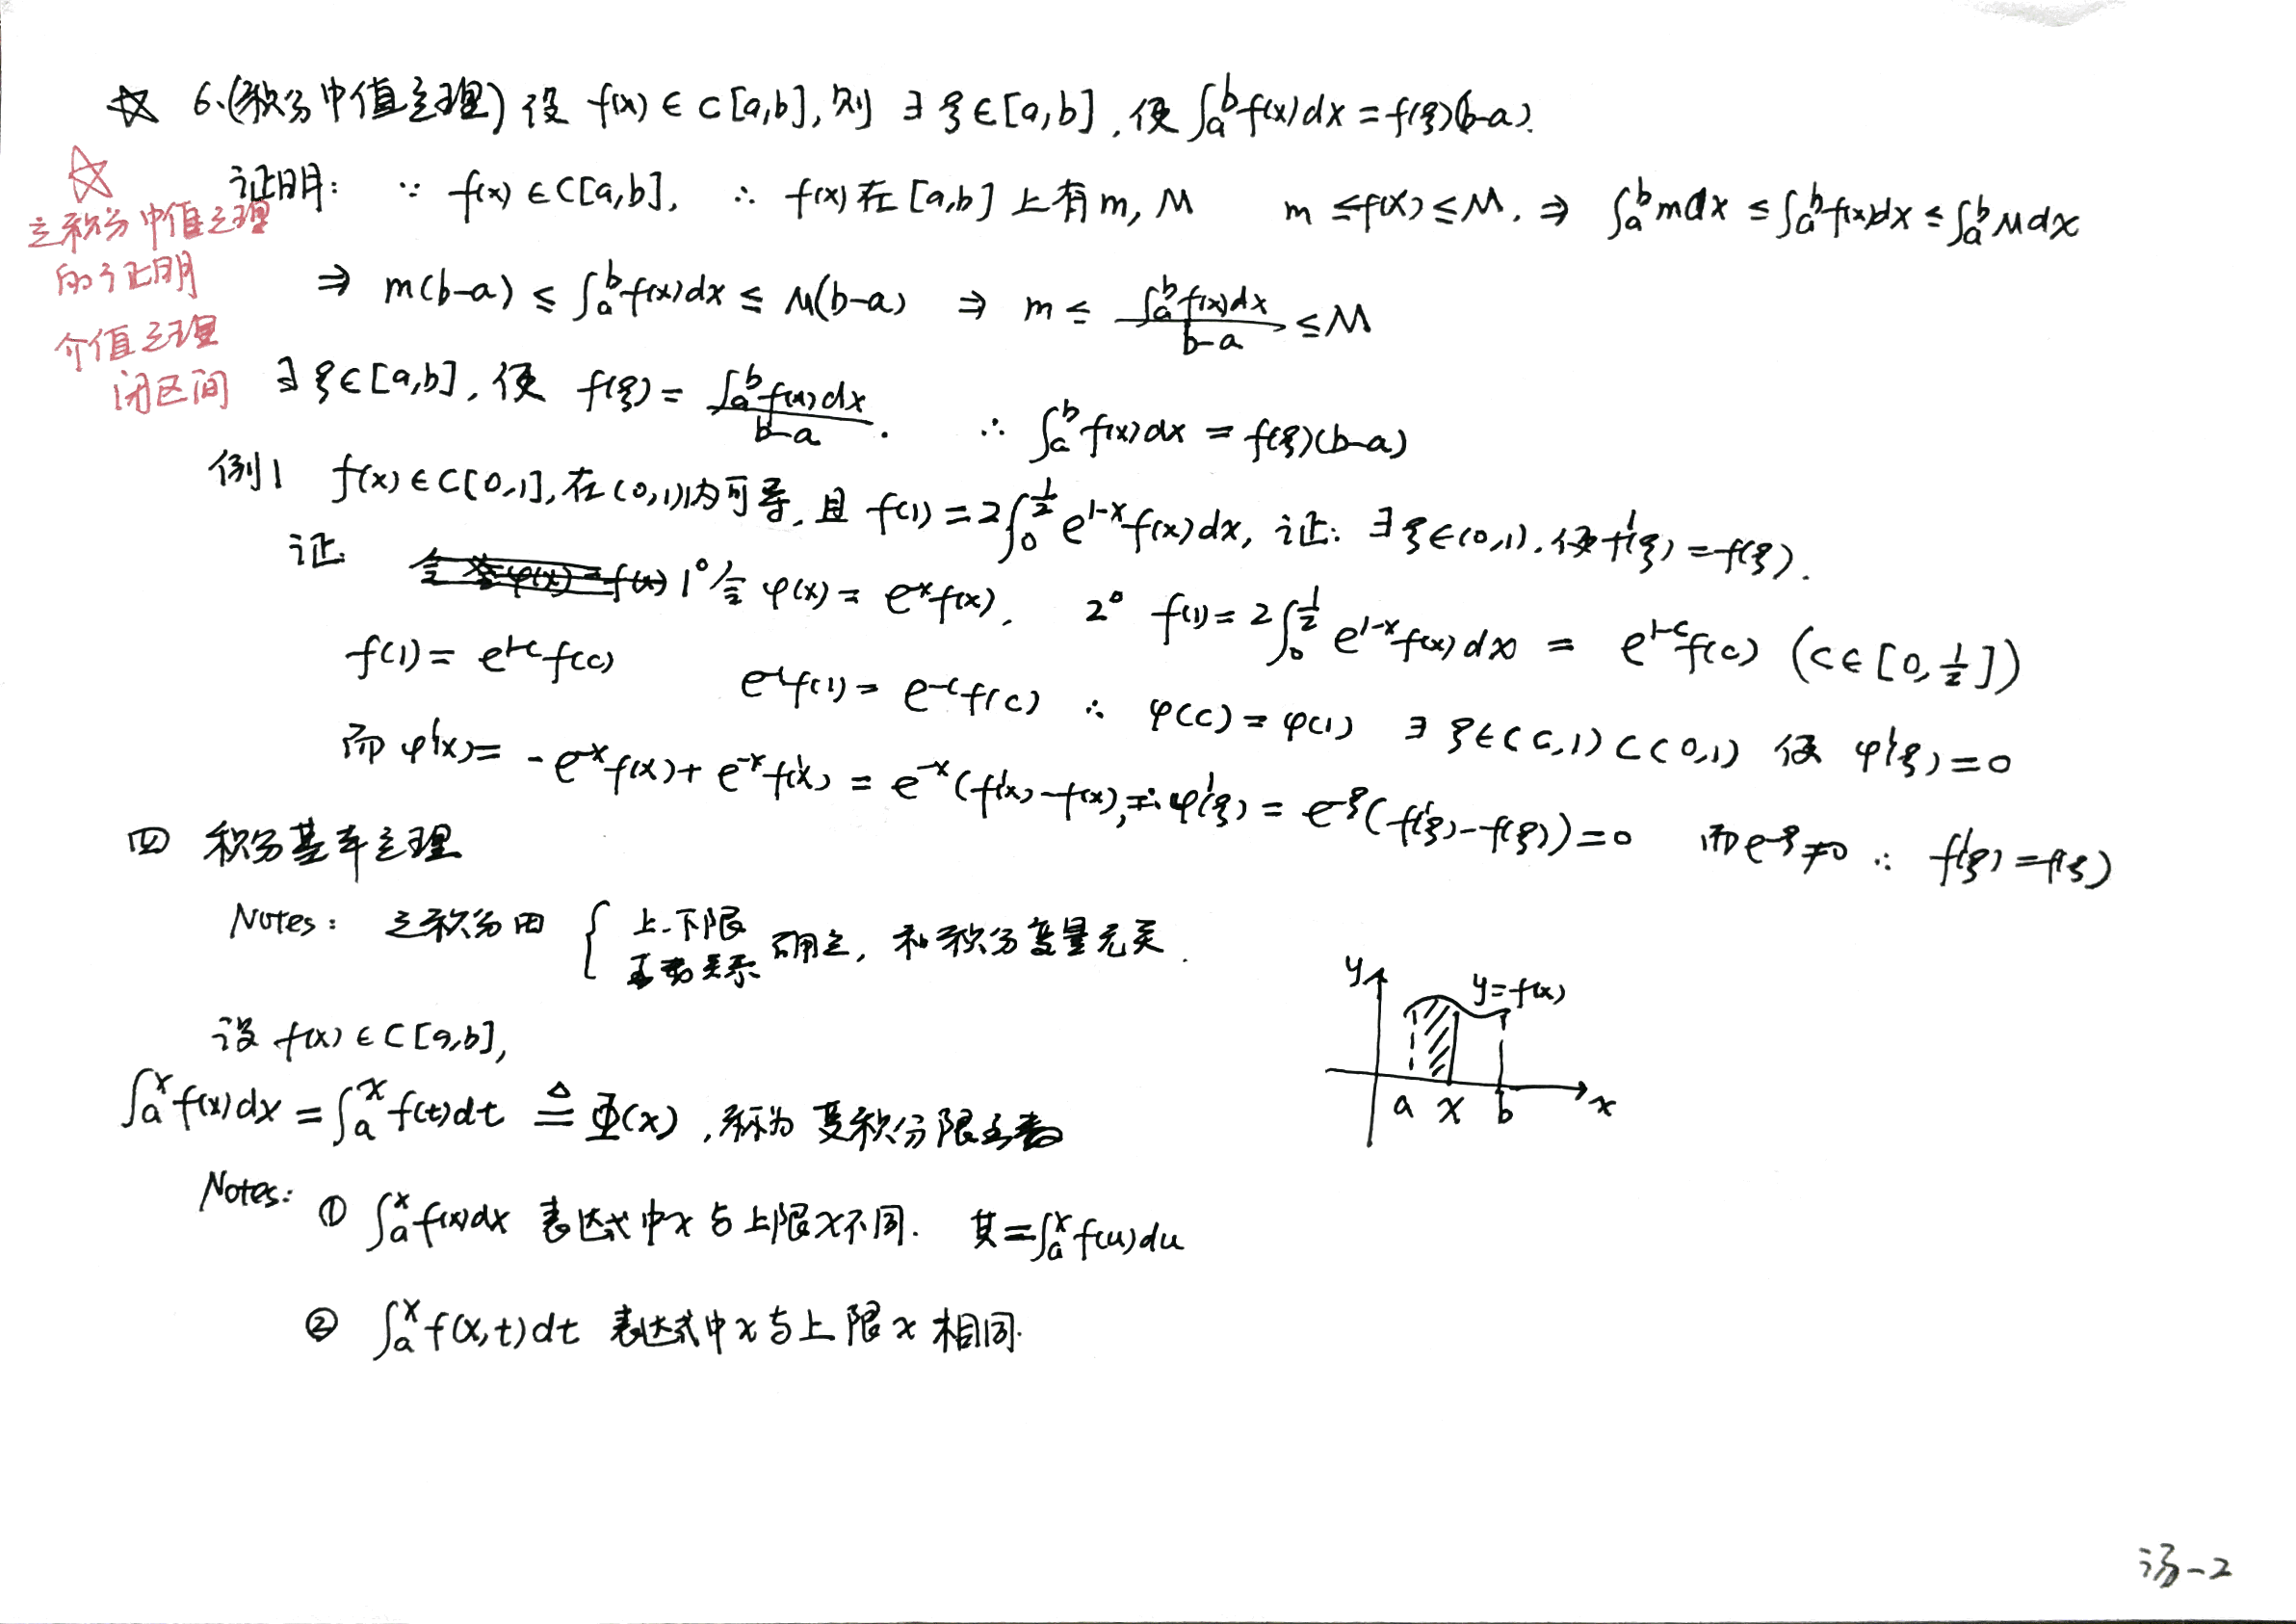 ☆ 6.(积分中值定理) 设 f(x)∈C[a,b], 则 ∃ξ∈[a,b], 使∫_a^b f(x)dx=f(ξ)(b-a).
☆
定积分中值定理
的证明
介值定理
闭区间
证明: ∵ f(x)∈C[a,b], ∴ f(x)在[a,b]上有m, M m≤f(x)≤M, ⇒ ∫_a^b mdx≤∫_a^b f(x)dx≤∫_a^b Mdx
⇒ m(b-a)≤∫_a^b f(x)dx≤M(b-a) ⇒ m≤\frac{∫_a^b f(x)dx}{b-a}≤M
∃ξ∈[a,b], 使 f(ξ)=\frac{∫_a^b f(x)dx}{b-a}. ∴ ∫_a^b f(x)dx=f(ξ)(b-a)
例1 f(x)∈C[0,1], 在(0,1)内可导, 且 f(1)=2∫_0^{\frac{1}{2}} e^{1-x}f(x)dx, 证: ∃ξ∈(0,1), 使f'(ξ)=f(ξ).
证: 1° 令 φ(x)=e^{-x}f(x), 2° f(1)=2∫_0^{\frac{1}{2}} e^{1-x}f(x)dx = e^{1-c}f(c) (c∈[0,\frac{1}{2}])
f(1)=e^{1-c}f(c) e^{-1}f(1)=e^{-c}f(c) ∴ φ(c)=φ(1) ∃ξ∈(c,1)⊂(0,1) 使 φ'(ξ)=0
而 φ'(x)=-e^{-x}f(x)+e^{-x}f'(x)=e^{-x}(f'(x)-f(x)), ∴ φ'(ξ)=e^{-ξ}(f'(ξ)-f(ξ))=0 而e^{-ξ}≠0 ∴ f'(ξ)=f(ξ)
四 积分基本定理
Notes: 定积分由 { 上.下限
函数关系 确定, 和积分变量无关.
设 f(x)∈C[a,b],
∫_a^x f(x)dx=∫_a^x f(t)dt ≜ Φ(x), 称为 变积分限函数
y
y=f(x)
a x b x
Notes: ① ∫_a^x f(x)dx 表达式中x与上限x不同. 其=∫_a^x f(u)du
② ∫_a^x f(x,t)dt 表达式中x与上限x相同.
汤-2